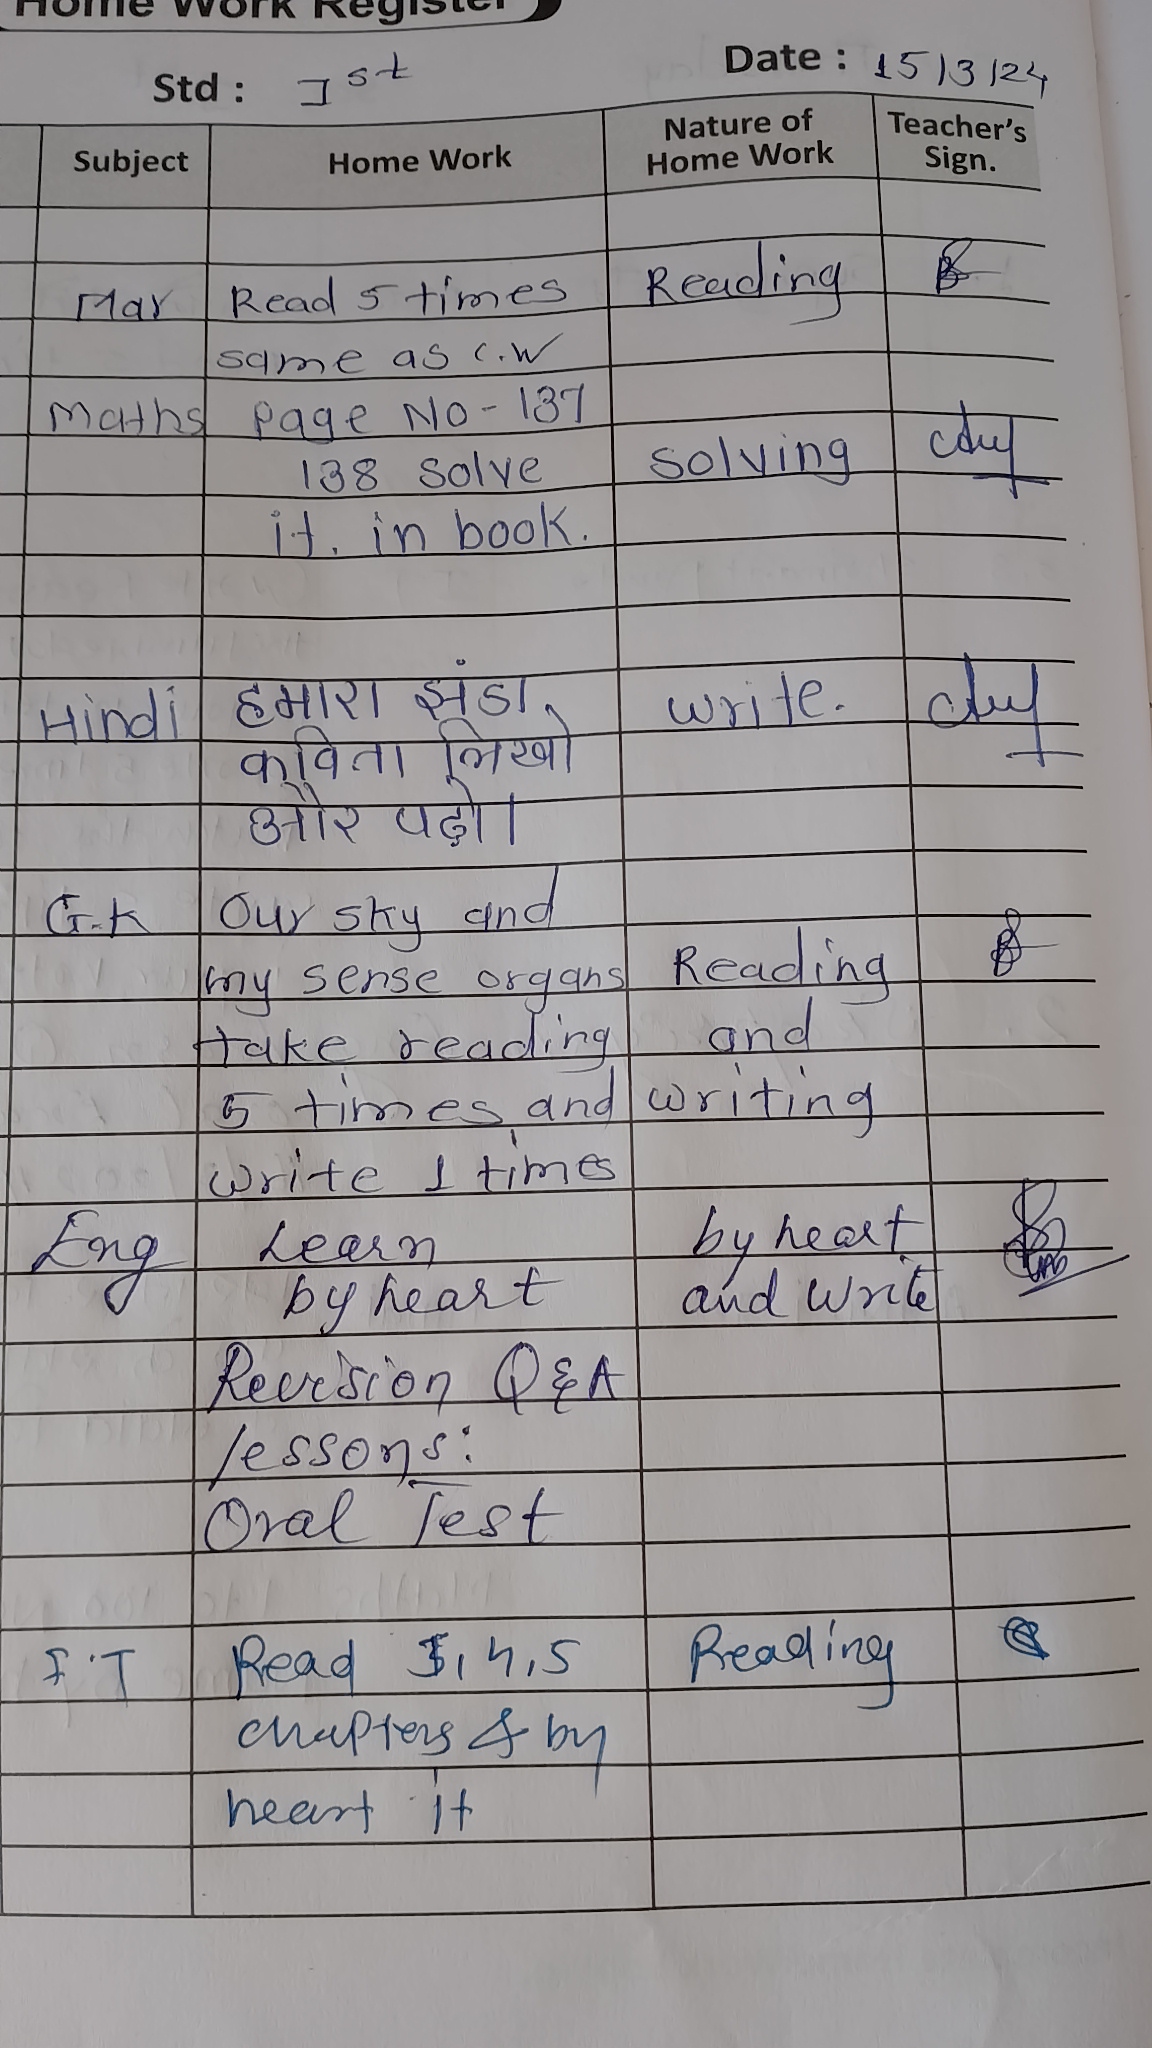 Home Work Register
Std : Ist Date : 15/3/24
Subject Home Work Nature of Home Work Teacher's Sign.
Mar Read 5 times Reading
same as C.W
Maths page No - 137
138 solve solving
it. in book.
Hindi हमारा झंडा write.
कविता लिखो
और पढ़ो।
G.K Our sky and
my sense organs Reading
take reading and
5 times and writing
write 1 times
Eng Learn by heart
by heart and write
Revision Q&A
lessons:
Oral Test
I.T Read 3, 4, 5 Reading
chapters & by
heart it